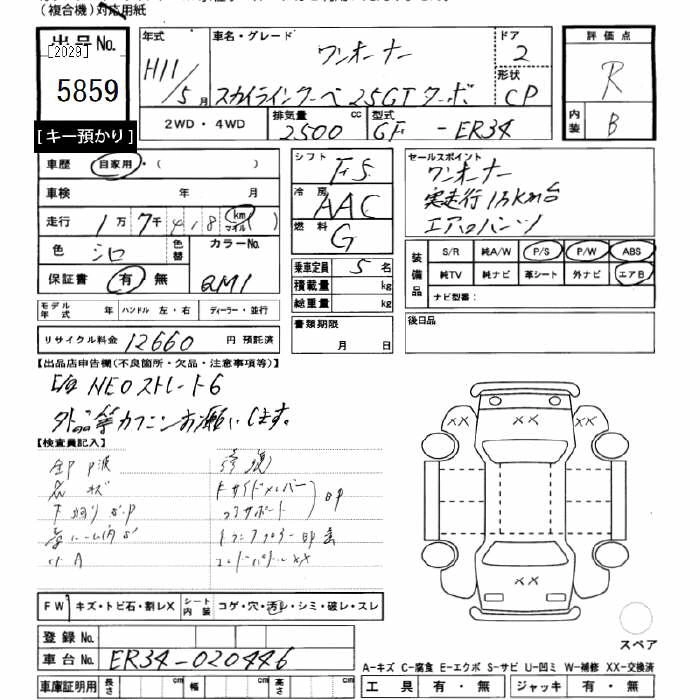 (複合機)対応用紙
出品No.
[2029]
5859
[キー預かり]
年式 H11/5月
車名・グレード ワンオーナー
スカイラインクーペ 25GTターボ
ドア 2
形状 CP
2WD・4WD
排気量 2500 cc
型式 GF - ER34
評価点 R
内装 B
車歴 自家用・( )
車検 年 月
走行 1万7千4 1 8 (km マイル)
色 シロ 色替 カラーNo.
保証書 有・無 QM1
モデル年式 年 ハンドル 左・右 ディーラー・並行
リサイクル料金 12660 円 預託済
シフト F5
冷房 AAC
燃料 G
乗車定員 5 名
積載量 kg
総重量 kg
書類期限
月 日
セールスポイント
ワンオーナー
実走行1万km台
エアロバンパー
装備品 S/R 純A/W P/S P/W ABS
純TV 純ナビ 革シート 外ナビ エアB
ナビ型番:
後日品
【出品店申告欄(不良箇所・欠品・注意事項等)】
NEOストレート6
外品等カクニンお願いします。
【検査員記入】
修復
サイドメンバー
コアサポート
小A
FW キズ・トビ石・割レX シート内装 コゲ・穴・汚レ・シミ・破レ・スレ
登録No.
車台No. ER34-020446
車庫証明用 長さ cm 幅 cm 高さ cm
XX
XX
XX
XX
スペア
A-キズ C-腐食 E-エクボ S-サビ U-凹ミ W-補修 XX-交換済
工具 有・無 ジャッキ 有・無